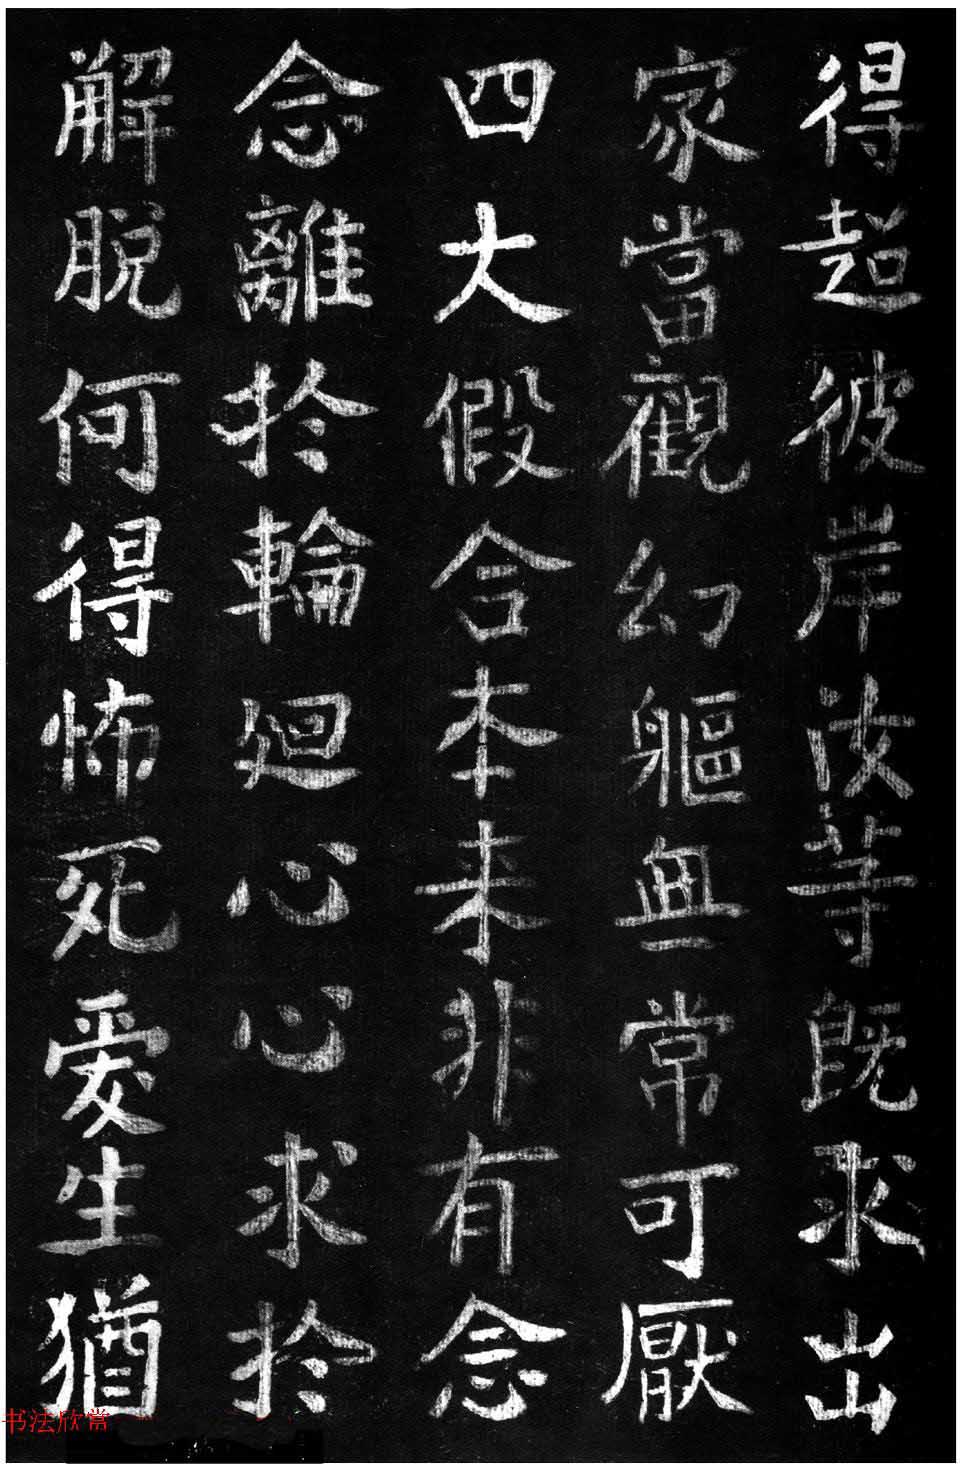 得超彼岸汝等既求出
家當觀幻軀無常可厭
四大假合本来非有念
念離於輪迴心心求於
解脫何得怖死愛生猶
书法欣赏